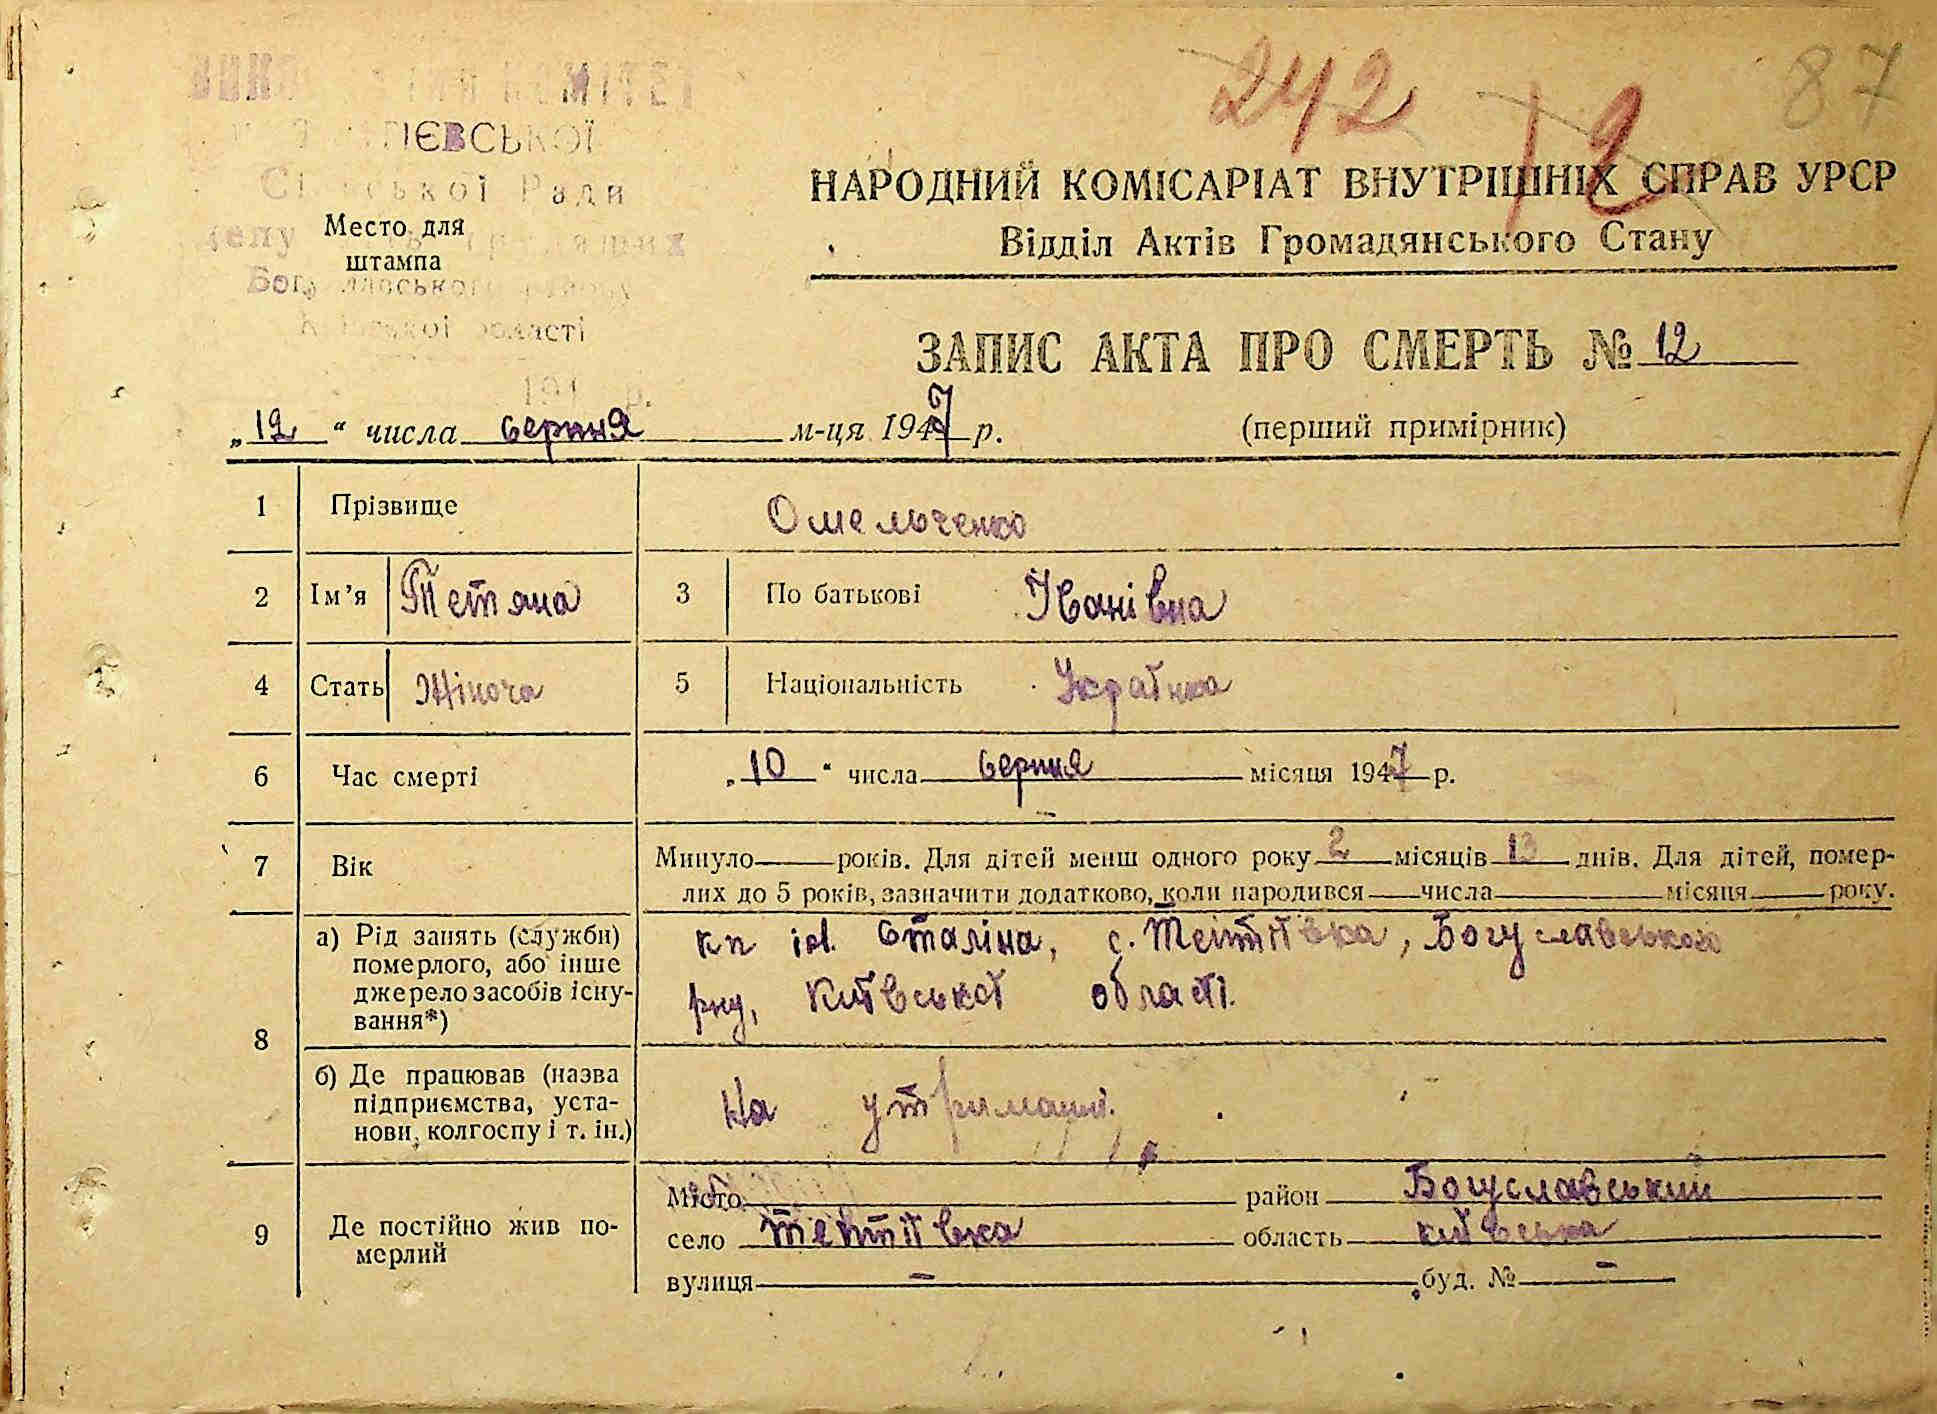 242 12 87
КОМІТЕТ
ІЄВСЬКОЇ
Сільської Ради
Место для
штампа
Київської області
194 р.
НАРОДНИЙ КОМІСАРІАТ ВНУТРІШНІХ СПРАВ УРСР
Відділ Актів Громадянського Стану
ЗАПИС АКТА ПРО СМЕРТЬ № 12
„12“ числа серпня м-ця 1947 р. (перший примірник)
1 Прізвище Омельченко
2 Ім’я Тетяна 3 По батькові Іванівна
4 Стать Жіноча 5 Національність Українка
6 Час смерті „10“ числа серпня місяця 1947 р.
7 Вік Минуло — років. Для дітей менш одного року 2 місяців 13 днів. Для дітей, помер-
лих до 5 років, зазначити додатково, коли народився — числа — місяця — року.
8 а) Рід занять (служби)
померлого, або інше
джерело засобів існу-
вання*)
кп ім. Сталіна, с. Тептіївка, Богуславського
рну, Київської області.
б) Де працював (назва
підприємства, уста-
нови, колгоспу і т. ін.)
На утриманні.
9 Де постійно жив по-
мерлий
Місто район Богуславський
село Тептіївка область київська
вулиця – буд. № –